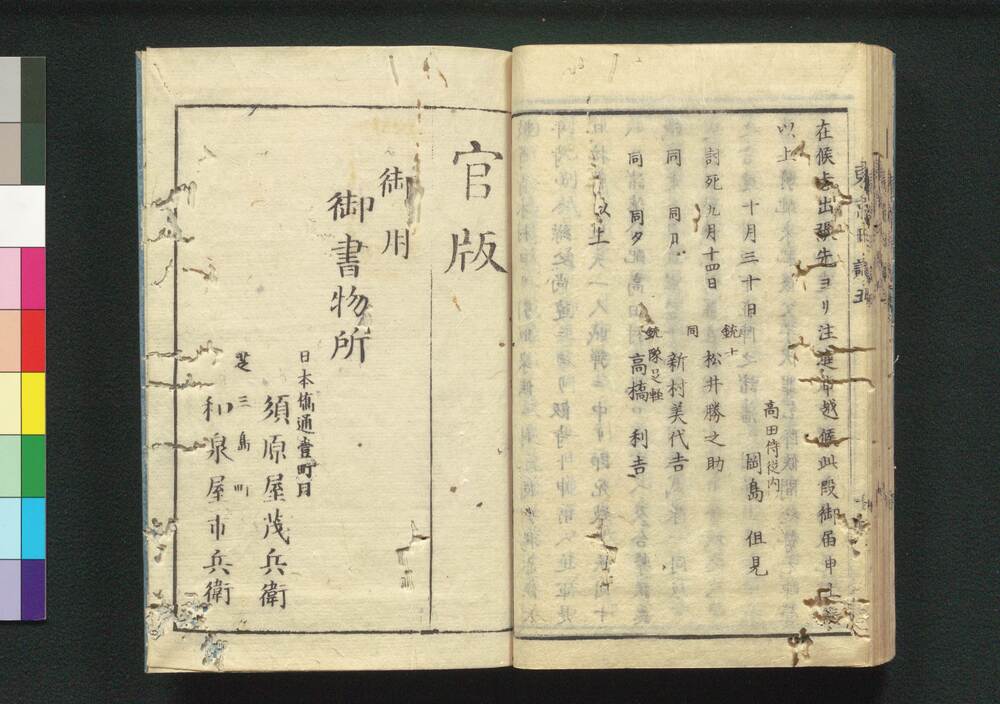 在候士出張先ヨリ注進申越候此段御届申上候
以上
十月三十日
高田侍従内
岡島但見
討死九月十四日
銃士
松井勝之助
同
同日
同
新村美代吉
同
同夕
銃隊足軽
高橋利吉
以上
官版
御用
御書物所
日本橋通壹町目
須原屋茂兵衛
芝三島町
和泉屋市兵衛